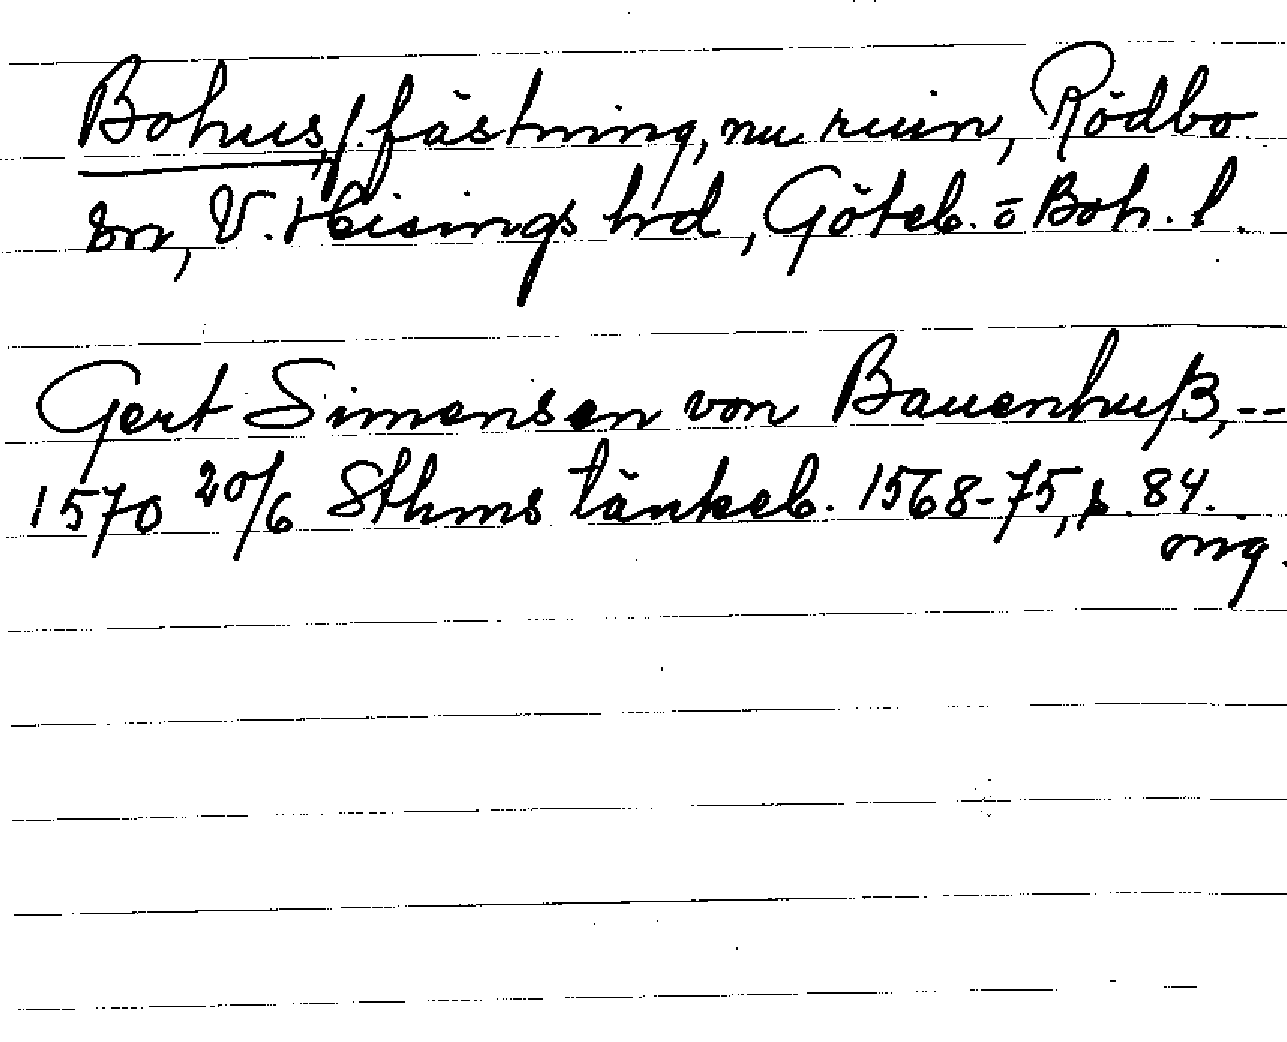 Bohus, f. fästning, nu ruin, Rödbo
sn, V. Hisings hd, Göteb. o Boh. l.
Gert Simensen von Bauenhuß, --
1570 20/6 Sthms tänkeb. 1568-75, s. 84.
orig.